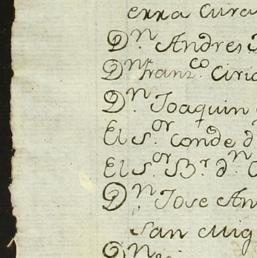 erra Cura
Dn. Andres
Dn. Franz.co Ciri
Dn. Joaquin
El S.or Conde d
El S.or Br. dn.
Dn. Jose An
San Mig
Dn.